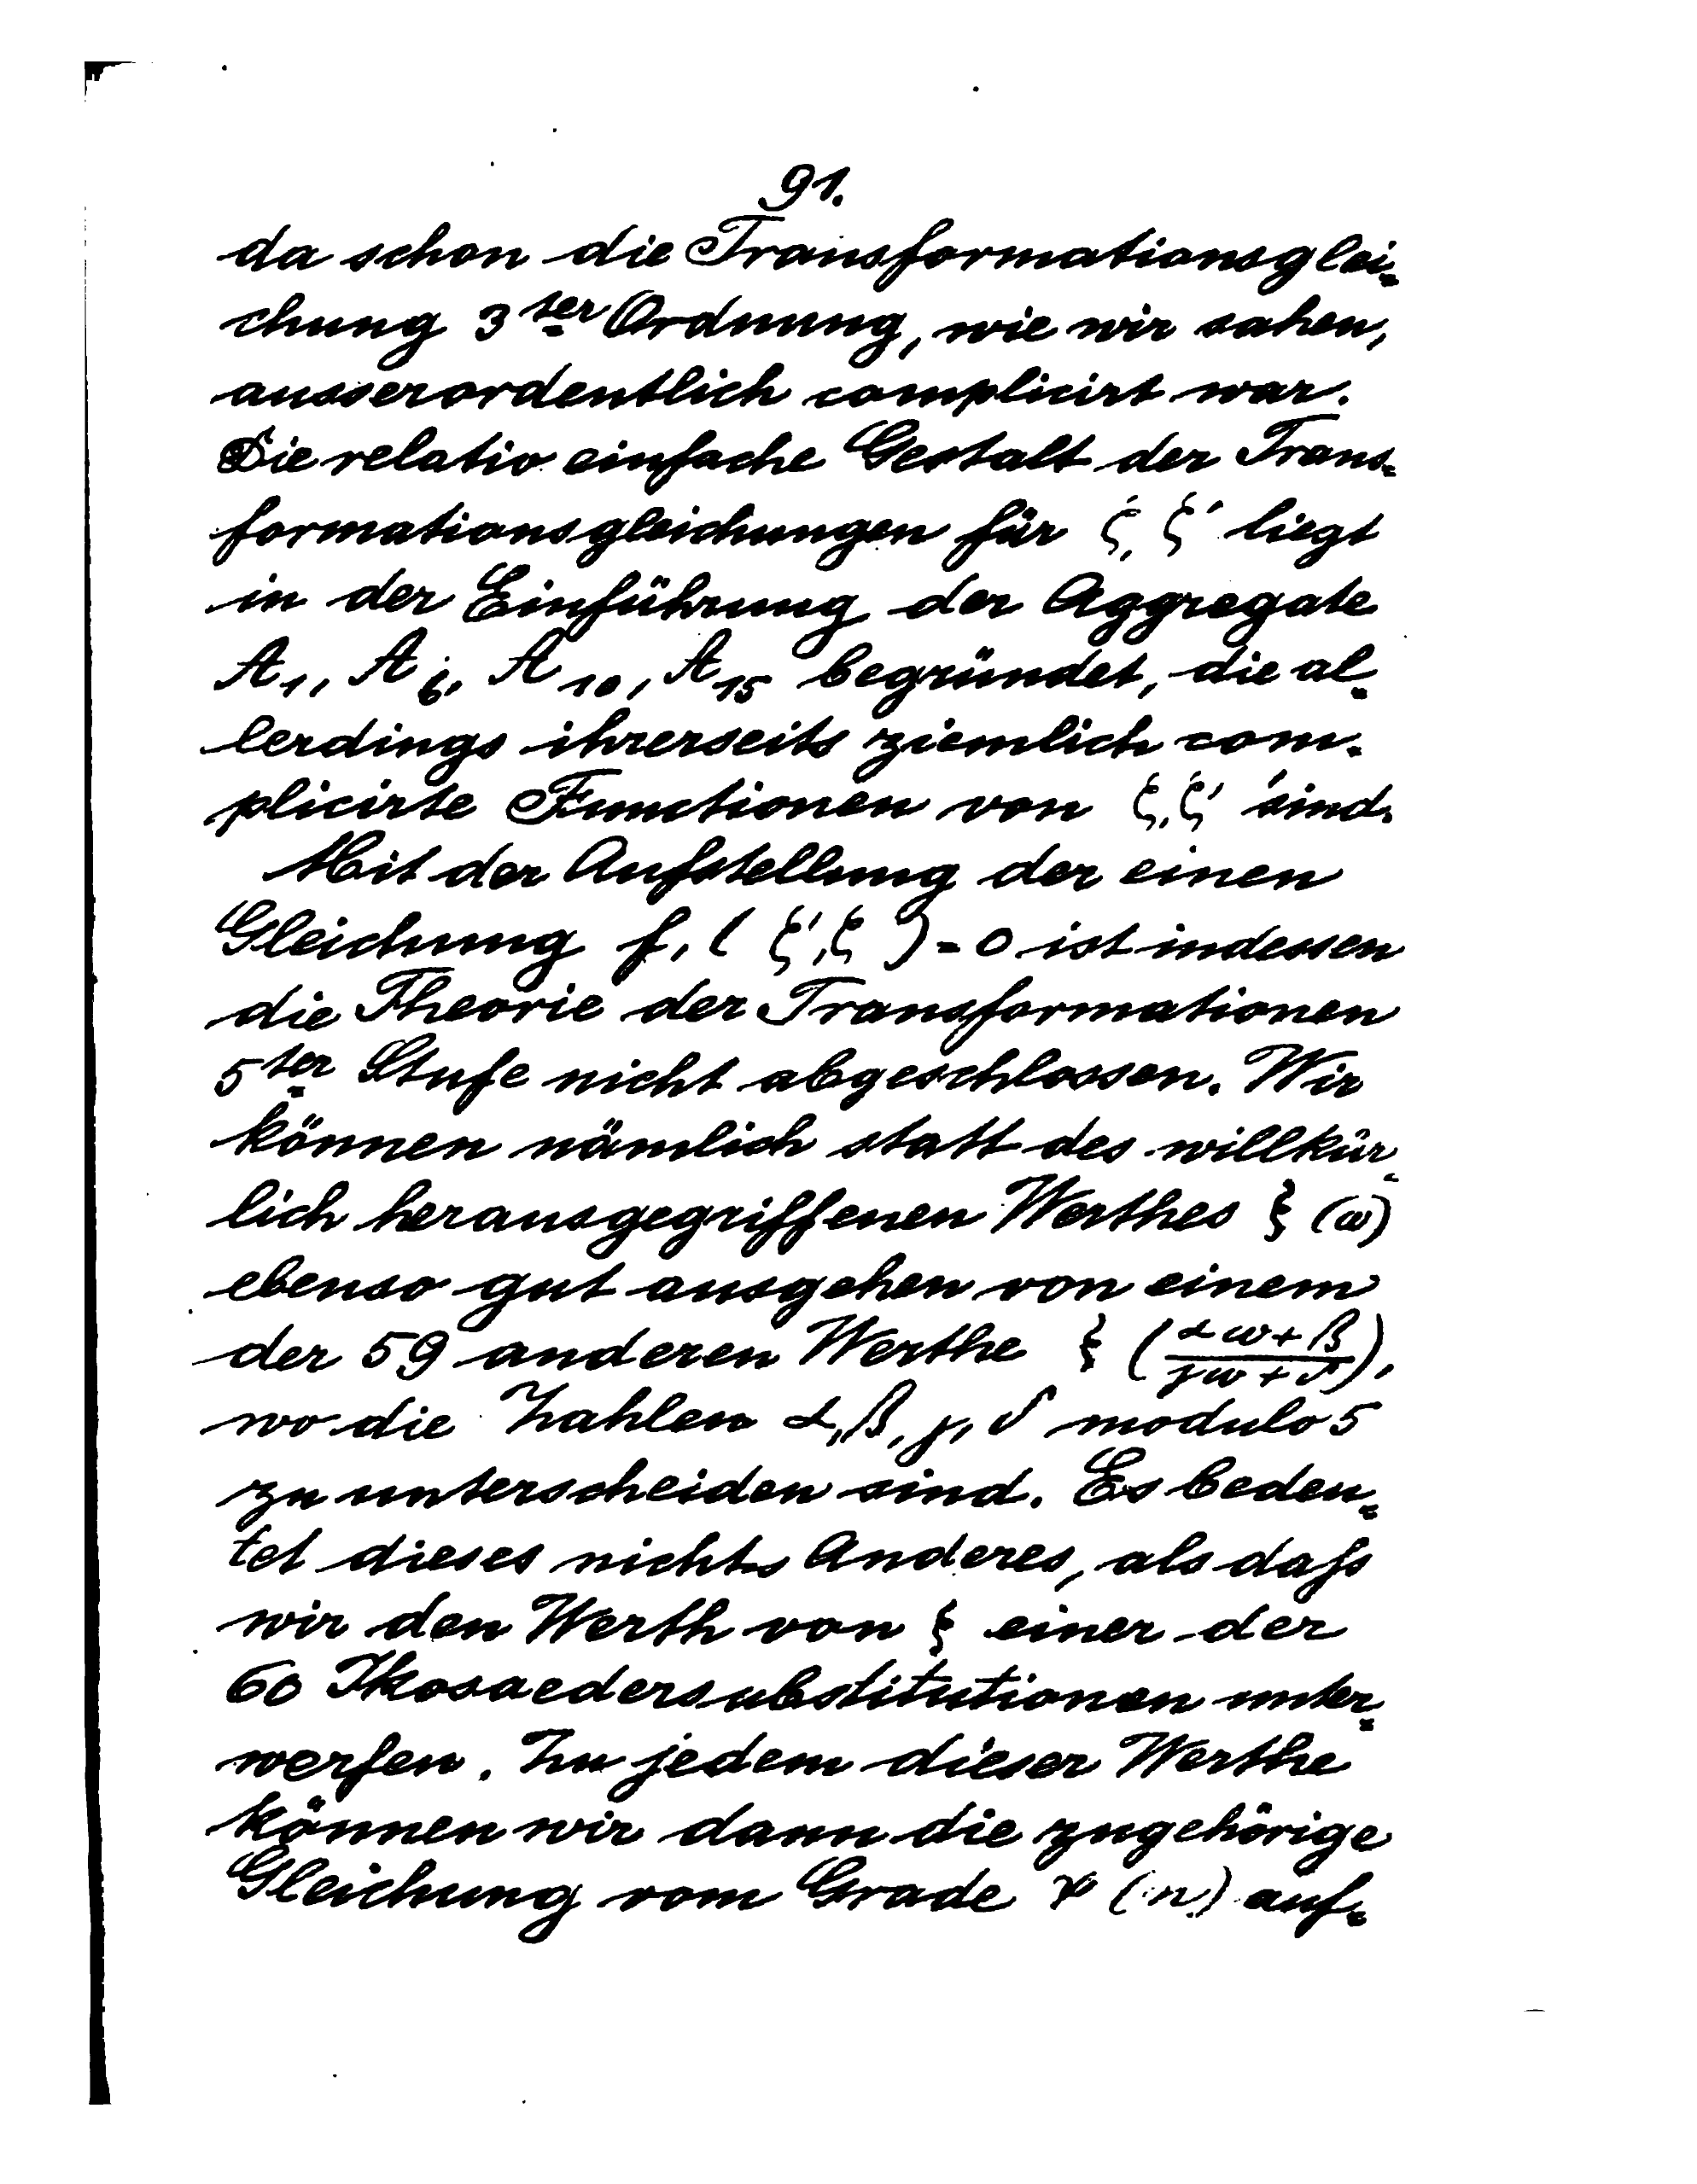 91.
da schon die Transformationsglei-
chung 3ter Ordnung, wie wir sahen,
ausserordentlich complicirt war.
Die relativ einfache Gestalt der Trans-
formationsgleichungen für ζ, ζ' liegt
in der Einführung der Aggregate
A₁, A₆, A₁₀, A₁₅ begründet, die al-
lerdings ihrerseits ziemlich com-
plicirte Functionen von ζ, ζ' sind.
Mit der Aufstellung der einen
Gleichung f₁ (ζ', ζ) = 0 ist indessen
die Theorie der Transformationen
5ter Stufe nicht abgeschlossen. Wir
können nämlich statt des willkür-
lich herausgegriffenen Werthes ξ (ω)
ebenso gut ausgehen von einem
der 59 anderen Werthe ξ ((αω+β)/(γω+δ)),
wo die Zahlen α, β, γ, δ modulo 5
zu unterscheiden sind. Es bedeu-
tet dieses nichts Anderes, als daſs
wir den Werth von ξ einer der
60 Ikosaedersubstitutionen unter-
werfen. Zu jedem dieser Werthe
können wir dann die zugehörige
Gleichung vom Grade ψ (n) auf-